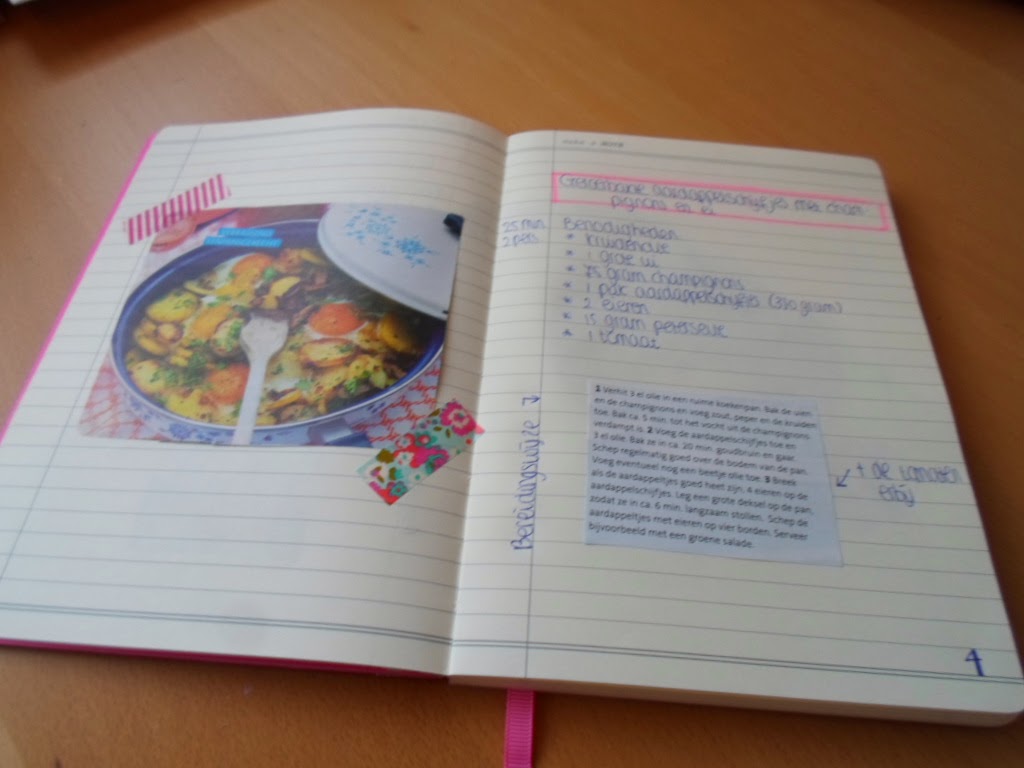 aardappelschijfjes met cham-
pignons en ei
25 min
2 pers.
Benodigdheden
* kruidenolie
* 1 grote ui
* 75 gram champignons
* 1 pak aardappelschijfjes (350 gram)
* 2 eieren
* 15 gram peterselie
* 1 tomaat
Bereidingswijze
1 Verhit 3 el olie in een ruime koekenpan. Bak de uien
en de champignons en voeg zout, peper en de kruiden
toe. Bak ca. 5 min. tot het vocht uit de champignons
verdampt is. 2 Voeg de aardappelschijfjes toe en
3 el olie. Bak ze in ca. 20 min. goudbruin en gaar.
Schep regelmatig goed over de bodem van de pan.
Voeg eventueel nog een beetje olie toe. 3 Breek
als de aardappeltjes goed heet zijn, 4 eieren op de
aardappelschijfjes. Leg een grote deksel op de pan,
zodat ze in ca. 6 min. langzaam stollen. Schep de
aardappeltjes met eieren op vier borden. Serveer
bijvoorbeeld met een groene salade.
+ de tomaten
erbij
4